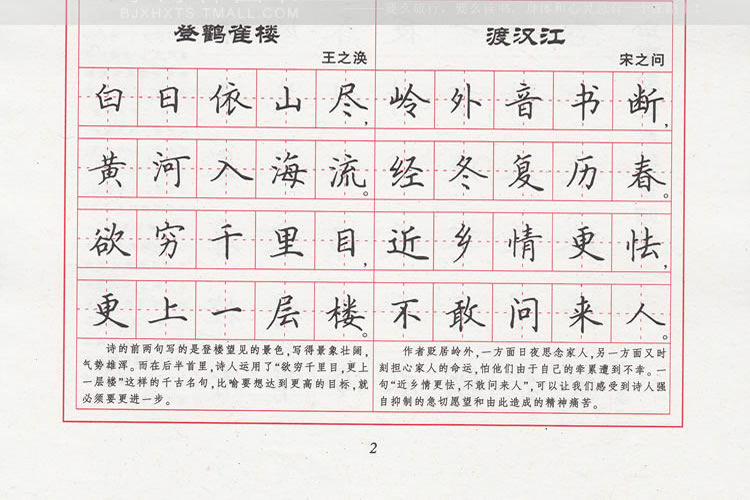 BJXHXTS.TMALL.COM
登鹳雀楼
王之涣
白日依山尽,
黄河入海流。
欲穷千里目,
更上一层楼。
诗的前两句写的是登楼望见的景色,写得景象壮阔,
气势雄浑。而在后半首里,诗人运用了“欲穷千里目,更上
一层楼”这样的千古名句,比喻要想达到更高的目标,就
必须要更进一步。
渡汉江
宋之问
岭外音书断,
经冬复历春。
近乡情更怯,
不敢问来人。
作者贬居岭外,一方面日夜思念家人,另一方面又时
刻担心家人的命运,怕他们由于自己的牵累遭到不幸。一
句“近乡情更怯,不敢问来人”,可以让我们感受到诗人强
自抑制的急切愿望和由此造成的精神痛苦。
2